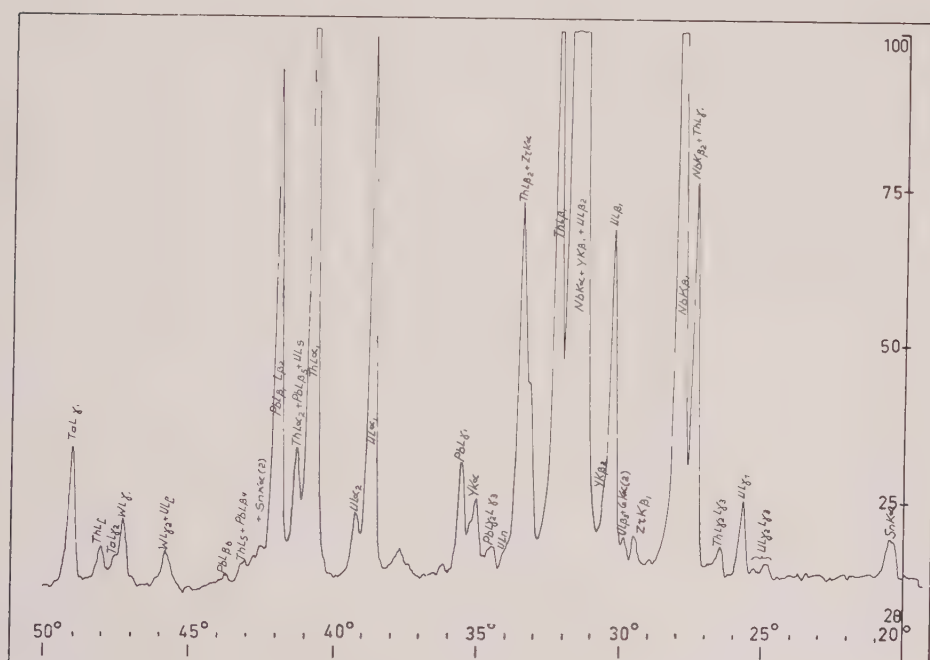 100
75
50
25
TaLγ₁
ThLζ
TaLγ₂
WLγ₁
WLγ₂+ULζ
PbLβ₆
ThLs+PbLβ₄
+SnKα(2)
PbLβ₁Lβ₂
ThLα₂+PbLβ₅+ULs
ThLα₁
ULα₂
ULα₁
PbLγ₁
YKα
PbLγ₂Lγ₃
ULη
ThLβ₂+ZrKα
ThLβ₁
NbKα+YKβ₁+ULβ₂
YKβ₂
ULβ₁
ULβ₃
ZrKβ₁
NbKβ₁
NbKβ₂+ThLγ₁
ThLγ₂Lγ₃
ULγ₁
ULγ₂Lγ₃
SnKα
50° 45° 40° 35° 30° 25° 20°
2θ